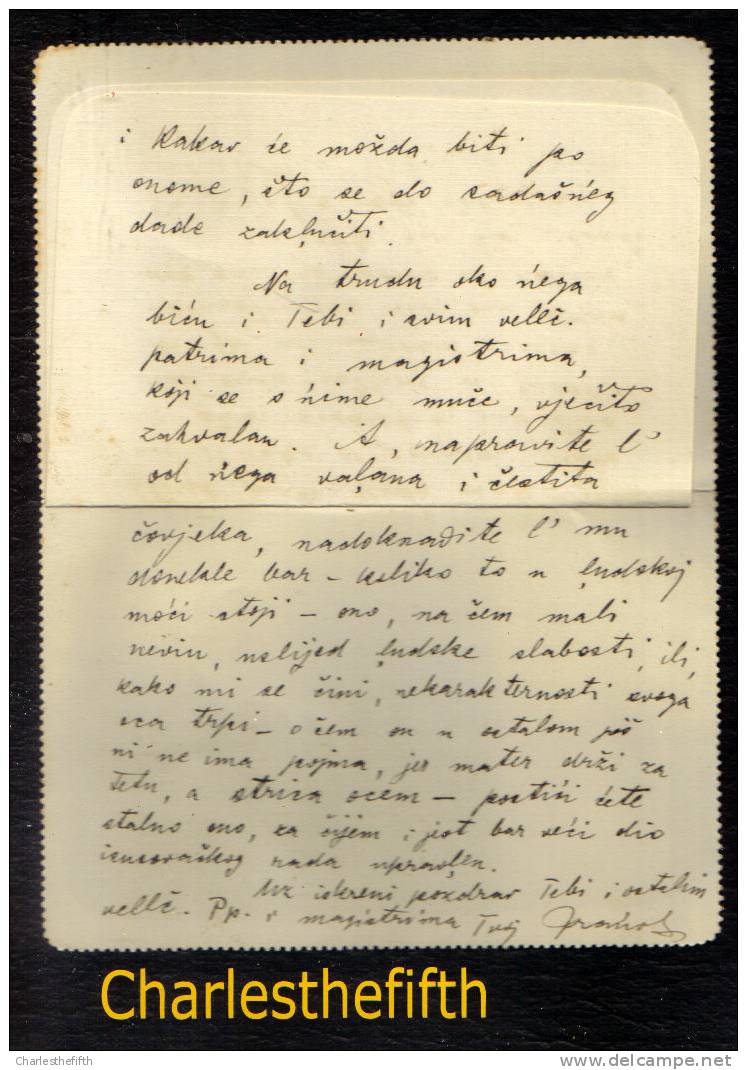 i kakav će možda biti po
onome, što se do sadašńeg
dade zakļučiti.
Na trudu oko ńega
biću i Tebi i svim velěč.
patrima i magistrima,
koji se s ńime muče, vječito
zahvalan. A, napravite l'
od ńega vaļana i čestita
čovjeka, nadoknadite l' mu
donekle bar – koliko to u ļudskoj
moći stoji – ono, na čem mali
nevin, uslijed ļudske slabosti, ili,
kako mi se čini, nekarakternosti svoga
oca trpi – o čem on u ostalom još
ni ne ima pojma, jer mater drži za
tetu, a strica ocem – postići ćete
stalno ono, za čijem i jest bar veći dio
isusovačkog rada upravļen.
Uz iskreni pozdrav Tebi i ostalim
velěč. Pp. i magistrima Tvoj
Charlesthefifth
Charlesthefifth
delcampe.net